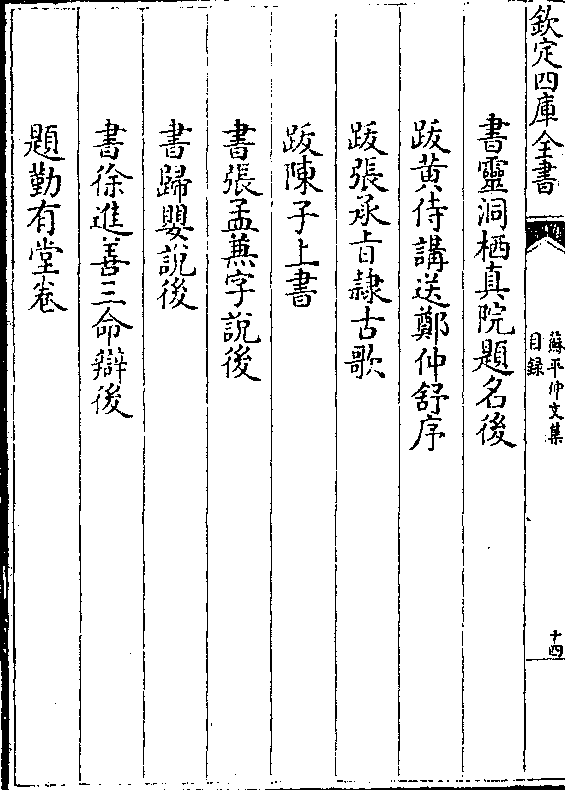 欽定四庫全書
蘇平仲文集
目録
十四
書靈洞栖真院題名後
跋黄侍講送鄭仲舒序
跋張承㫖隷古歌
跋陳子上書
書張孟蒹字說後
書歸嬰說後
書徐進善三命辯後
題勤有堂卷